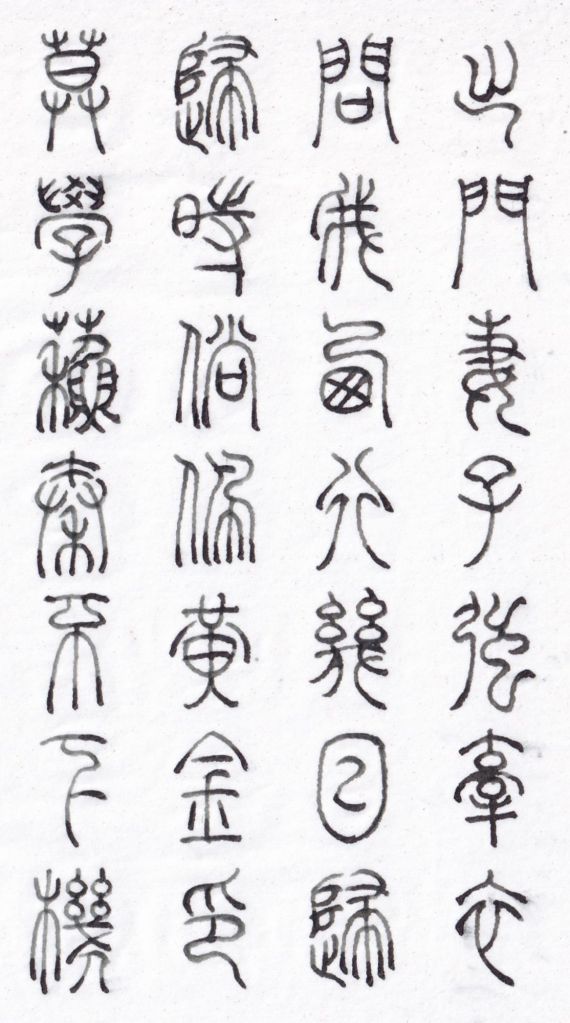 出門妻子強牽衣
問我西行幾日歸
歸時倘佩黃金印
莫學蘇秦不下機